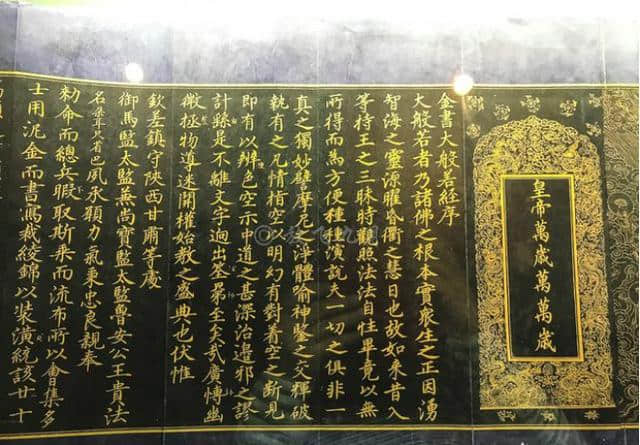 皇帝萬歲萬萬歲
金書大般若經序
大般若者乃諸佛之根本實衆生之正因湧
智海之靈源曜昏衢之慧日也故如來昔入
等持王之三昧時觀照法法自性畢竟以無
所得而為方便種種演說夫一切之俱非一
真之獨妙譬摩尼之淨體喻神鑒之交釋破
執有之凡情指空以明幻有對着空之断見
即有以辨色空示中道之甚深治邅邪之謬
計繇是不離文字逈出荃第至矣哉廣博幽
微拯物導迷開權始教之盛典也伏惟
欽差鎮守陝西甘肅等處
御馬監太監無尚寶監太監魯安公王貴法
名桑省巴夙承願力氣秉忠良親奉
勑命而總兵暇取斯乘而流布所以會集多
士用泥金而書寫裁綾錦以裝潢統該廿十